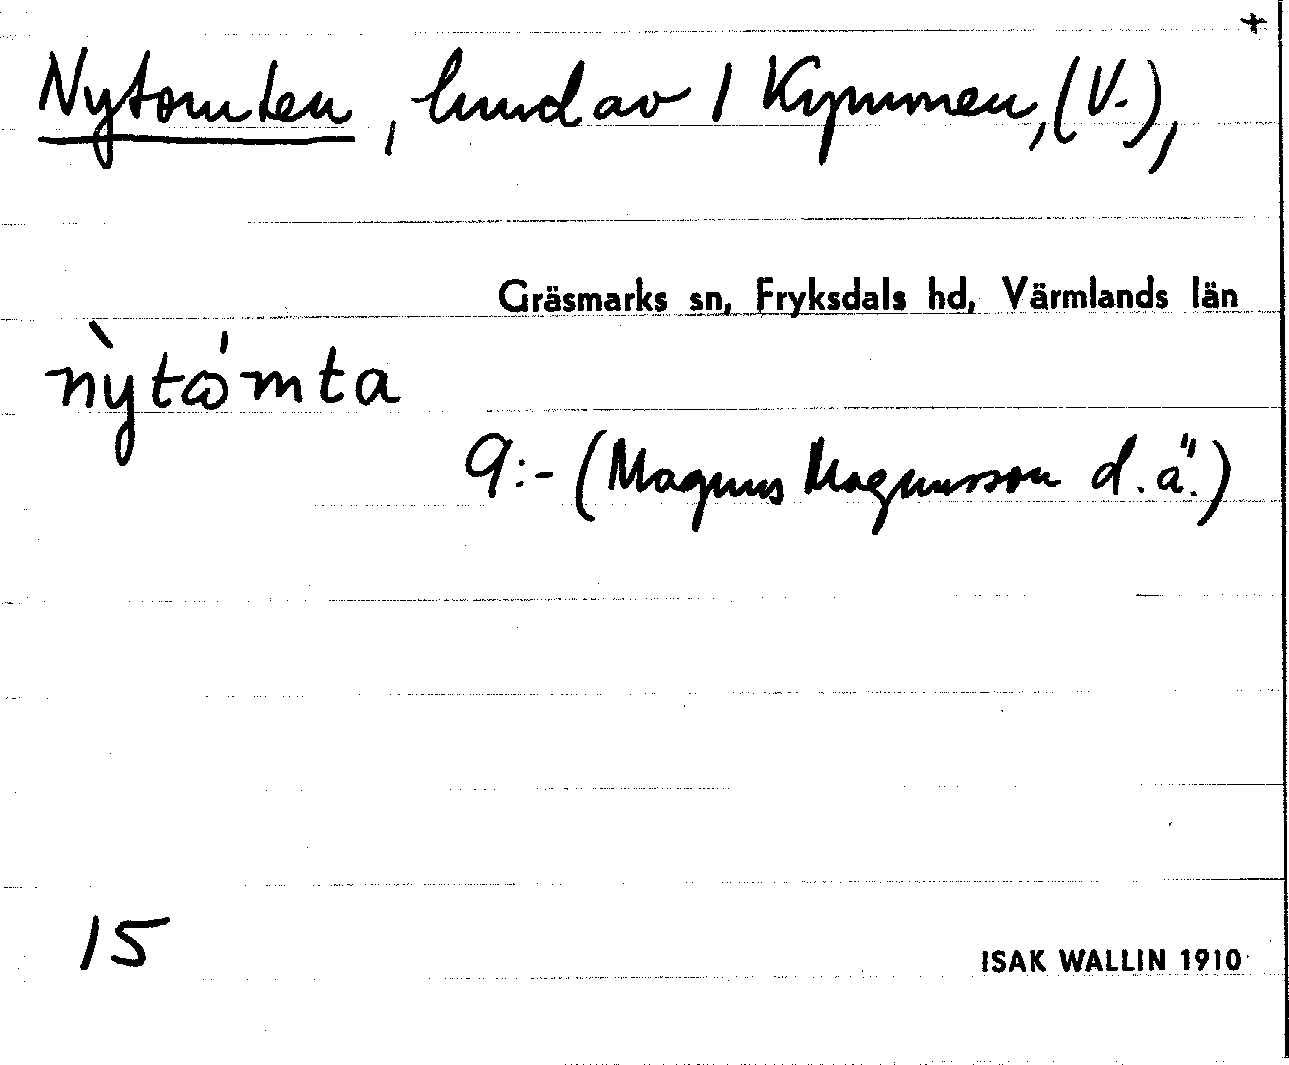 +
Nytomten, hmd av 1 Kymmen, (V.),
Gräsmarks sn, Fryksdals hd, Värmlands län
nỳtώmta
9:- (Magnus Magnusson d.ä.)
15
ISAK WALLIN 1910